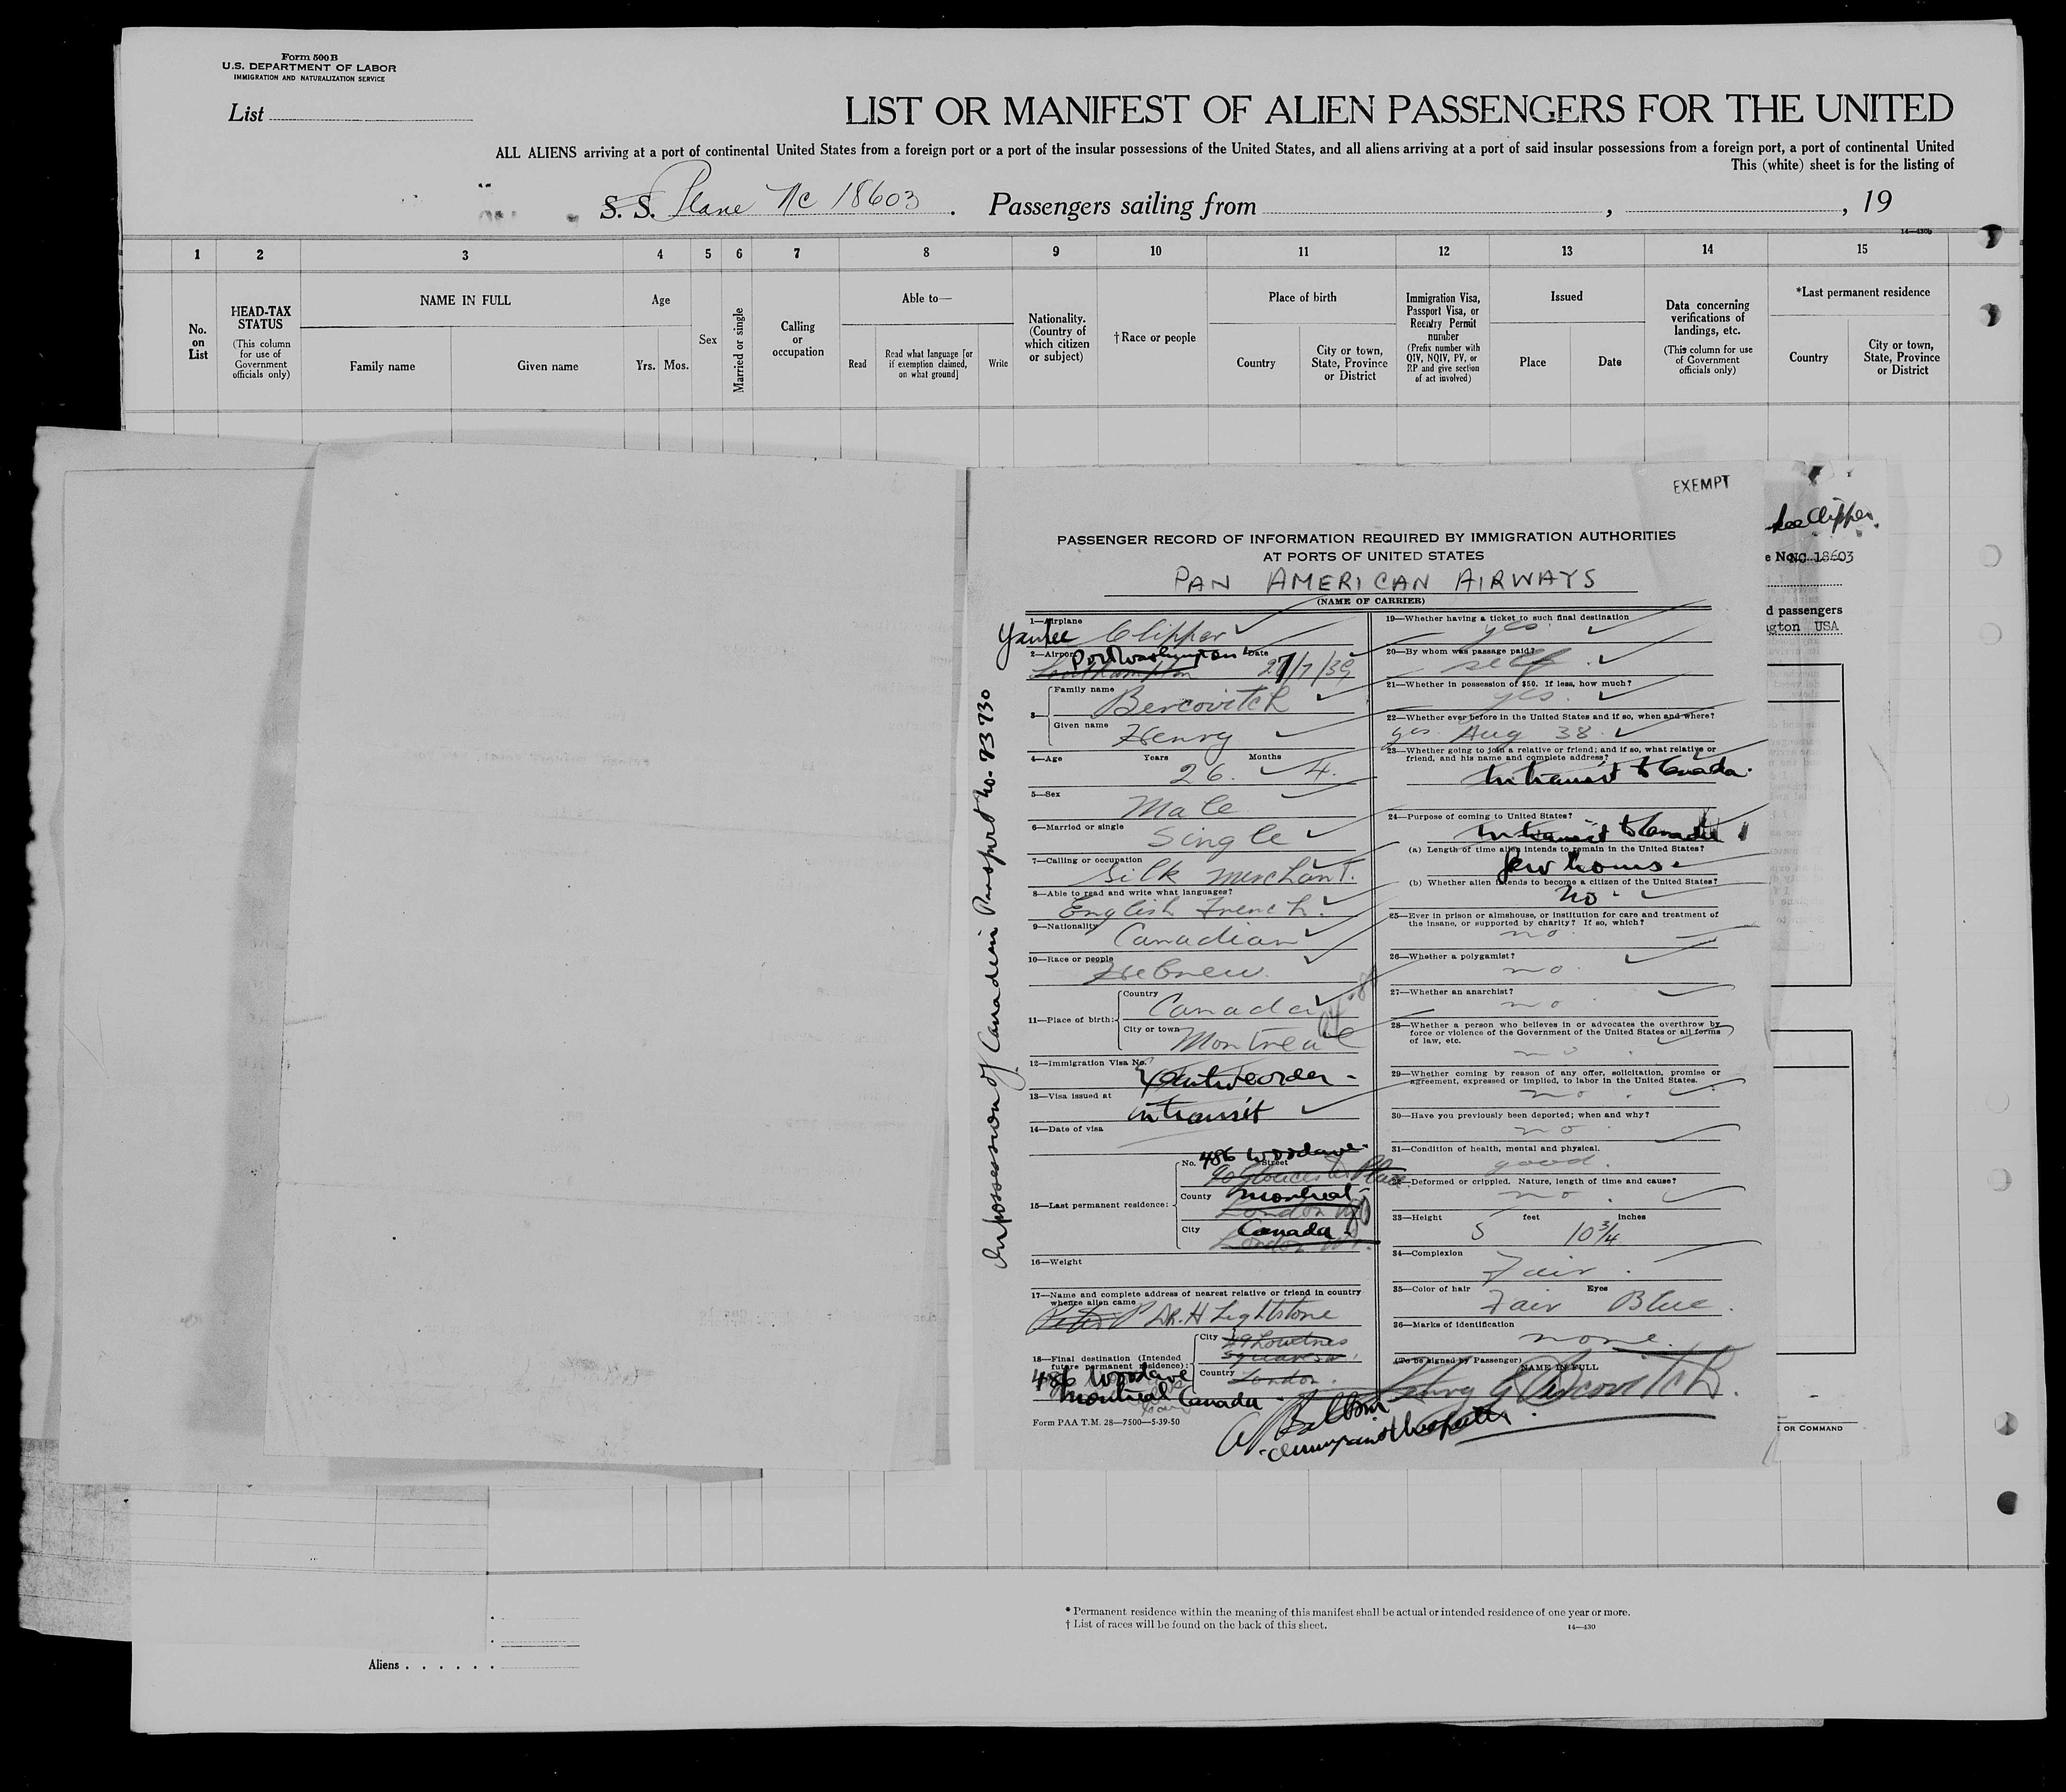 Form 500 B
U.S. DEPARTMENT OF LABOR
IMMIGRATION AND NATURALIZATION SERVICE
List
LIST OR MANIFEST OF ALIEN PASSENGERS FOR THE UNITED
ALL ALIENS arriving at a port of continental United States from a foreign port or a port of the insular possessions of the United States, and all aliens arriving at a port of said insular possessions from a foreign port, a port of continental United
This (white) sheet is for the listing of
S. S. Plane NC 18603 . Passengers sailing from , , 19
14—430b
1 2 3 4 5 6 7 8 9 10 11 12 13 14 15
No. on List
HEAD-TAX STATUS
(This column for use of Government officials only)
NAME IN FULL
Family name
Given name
Age
Yrs. Mos.
Sex
Married or single
Calling or occupation
Able to—
Read
Read what language [or if exemption claimed, on what ground]
Write
Nationality. (Country of which citizen or subject)
† Race or people
Place of birth
Country
City or town, State, Province or District
Immigration Visa, Passport Visa, or Reentry Permit number
(Prefix number with QIV, NQIV, PV, or RP and give section of act involved)
Issued
Place
Date
Data concerning verifications of landings, etc.
(This column for use of Government officials only)
*Last permanent residence
Country
City or town, State, Province or District
EXEMPT
PASSENGER RECORD OF INFORMATION REQUIRED BY IMMIGRATION AUTHORITIES
AT PORTS OF UNITED STATES
PAN AMERICAN AIRWAYS
(NAME OF CARRIER)
1—Airplane
Yankee Clipper
2—Airport Port Washington Date
Southampton 27/7/39
3—
Family name
Bercovitch
Given name
Henry
4—Age Years Months
26. 4.
5—Sex
Male
6—Married or single
Single
7—Calling or occupation
Silk Merchant.
8—Able to read and write what languages?
English French.
9—Nationality
Canadian
10—Race or people
Hebrew.
11—Place of birth:
Country
Canada
City or town
Montreal
12—Immigration Visa No.
13—Visa issued at
in transit
14—Date of visa
15—Last permanent residence:
No. 486 Wood ave. Street
90 Gloucester Place
County Montreal
London
City Canada
London W1.
16—Weight
17—Name and complete address of nearest relative or friend in country whence alien came
Dr. H Lightstone
18—Final destination (Intended future permanent residence):
City
Country London.
486 Wood ave
Montreal Canada
Form PAA T.M. 28—7500—5-39-50
In possession of Canadian Passport No. 73730
19—Whether having a ticket to such final destination
yes.
20—By whom was passage paid?
self
21—Whether in possession of $50. If less, how much?
yes.
22—Whether ever before in the United States and if so, when and where?
yes. Aug 38.
23—Whether going to join a relative or friend; and if so, what relative or friend, and his name and complete address?
In transit to Canada.
24—Purpose of coming to United States?
In transit to Canada
(a) Length of time alien intends to remain in the United States?
few hours.
(b) Whether alien intends to become a citizen of the United States?
No.
25—Ever in prison or almshouse, or institution for care and treatment of the insane, or supported by charity? If so, which?
no.
26—Whether a polygamist?
no.
27—Whether an anarchist?
no.
28—Whether a person who believes in or advocates the overthrow by force or violence of the Government of the United States or all forms of law, etc.
no
29—Whether coming by reason of any offer, solicitation, promise or agreement, expressed or implied, to labor in the United States.
no.
30—Have you previously been deported; when and why?
no
31—Condition of health, mental and physical.
good.
32—Deformed or crippled. Nature, length of time and cause?
no.
33—Height feet inches
5 10 3/4
34—Complexion
Fair.
35—Color of hair Eyes
Fair Blue.
36—Marks of identification
none.
(To be signed by Passenger) NAME IN FULL
Henry G Bercovitch.
Clipper
e No. NC 18603
d passengers
gton USA
OR COMMAND
* Permanent residence within the meaning of this manifest shall be actual or intended residence of one year or more.
† List of races will be found on the back of this sheet.
14—430
Aliens . . . . . .